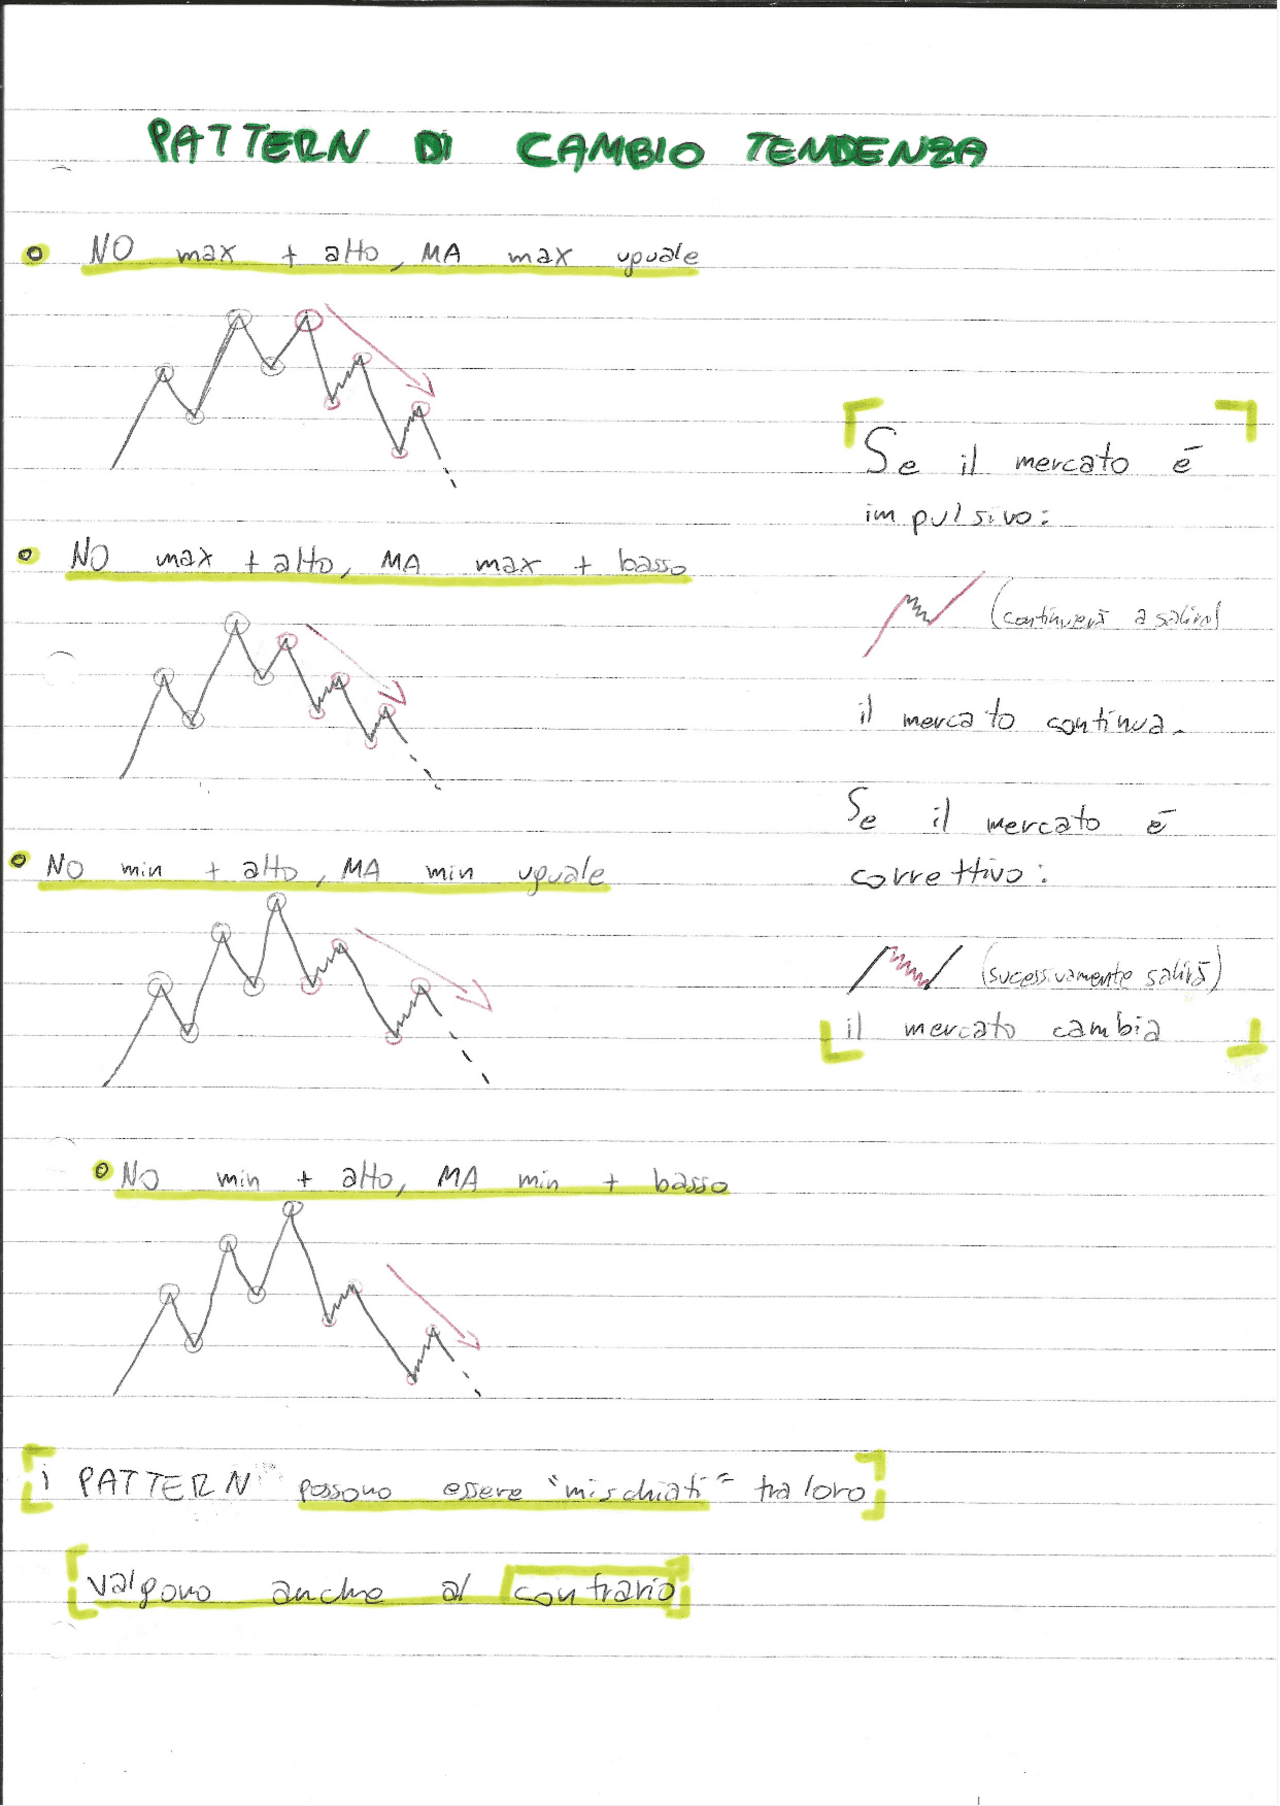 PATTERN DI CAMBIO TENDENZA
NO max + alto, MA max uguale
NO max + alto, MA max + basso
NO min + alto, MA min uguale
NO min + alto, MA min + basso
Se il mercato è
impulsivo:
(continuerà a salire)
il mercato continua.
Se il mercato è
correttivo:
(sucessivamente salirà)
il mercato cambia
i PATTERN possono essere "mischiati" tra loro
valgono anche al contrario